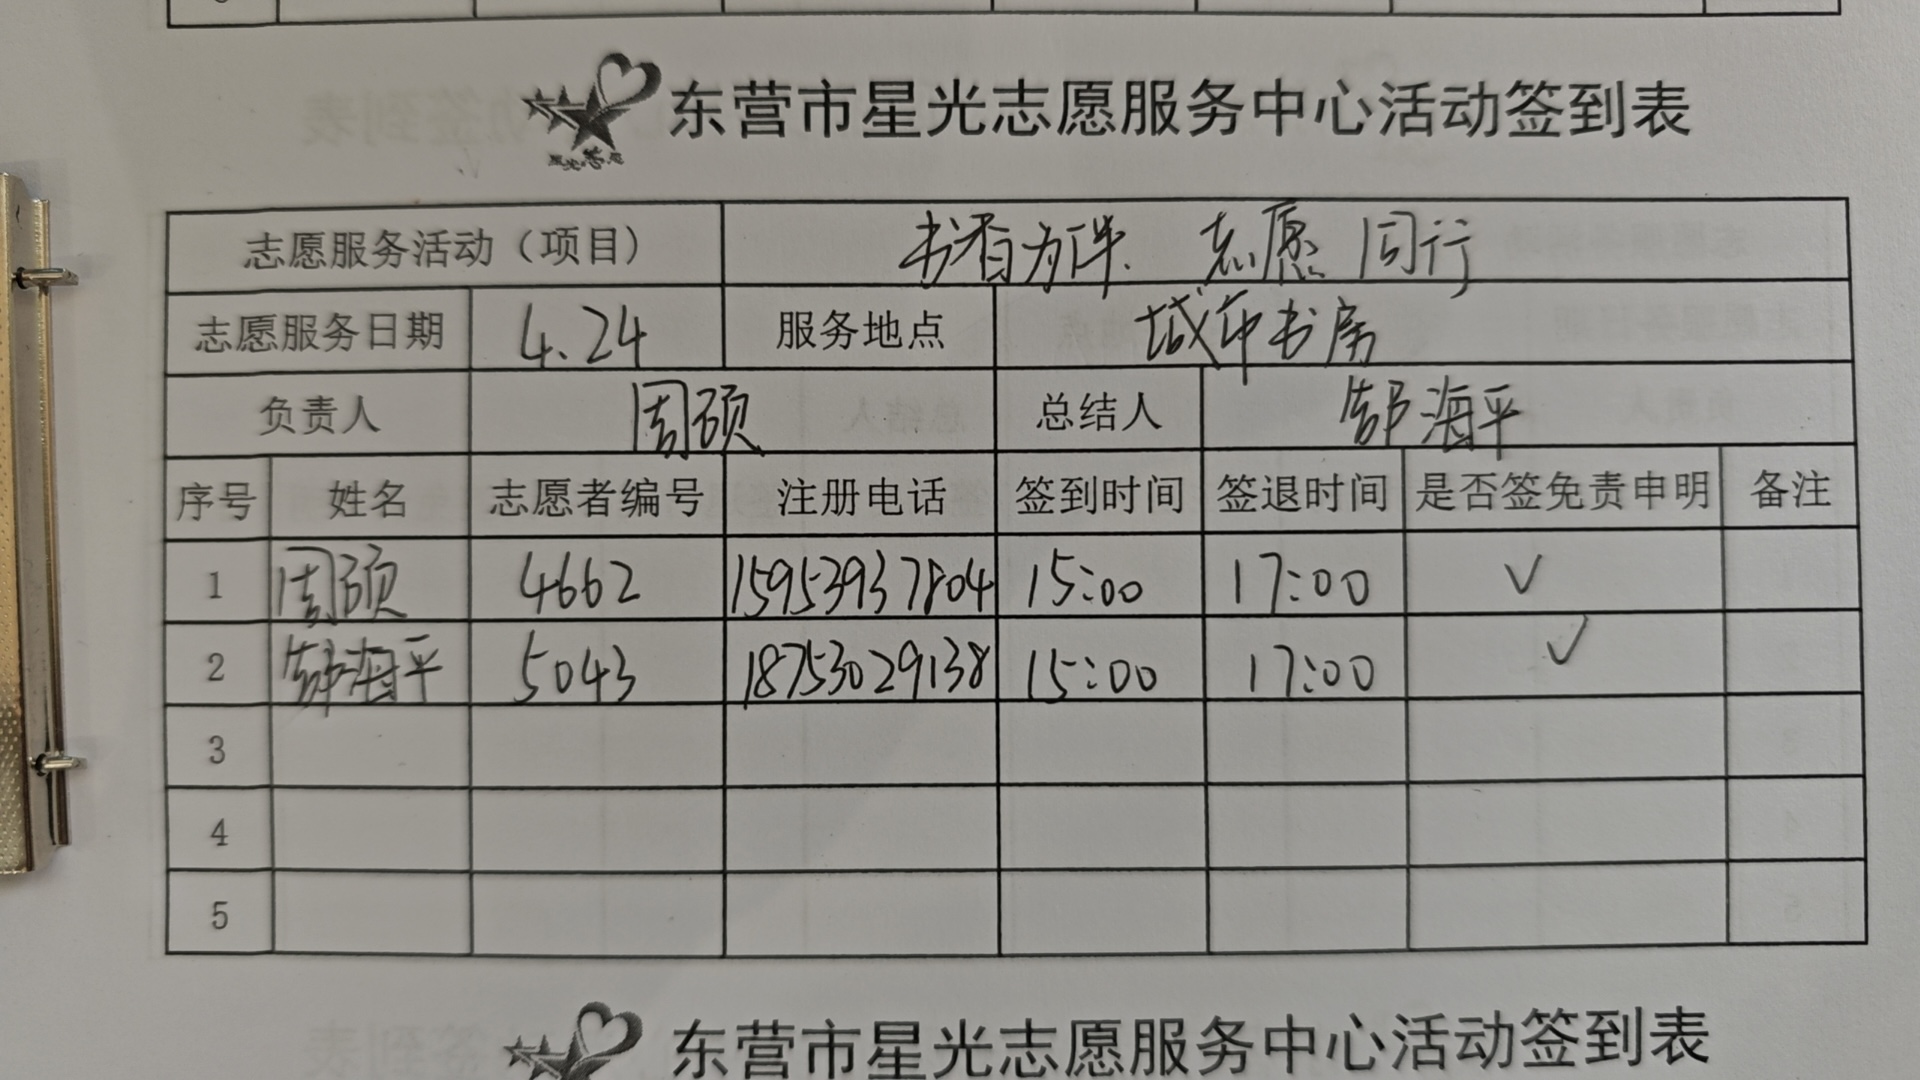 东营市星光志愿服务中心活动签到表
星光志愿
志愿服务活动（项目） 书香为伴、志愿同行
志愿服务日期 4.24 服务地点 城市书房
负责人 周硕 总结人 郜海平
序号 姓名 志愿者编号 注册电话 签到时间 签退时间 是否签免责申明 备注
1 周硕 4662 15953937804 15:00 17:00 ✓
2 郜海平 5043 18753029138 15:00 17:00 ✓
3
4
5
东营市星光志愿服务中心活动签到表